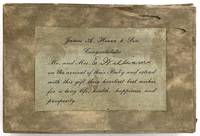 James A. Hearn & Son
Congratulates
Mr. and Mrs.
on the arrival of their Baby and extend
with this gift their heartiest best wishes
for a long life, health, happiness and
prosperity